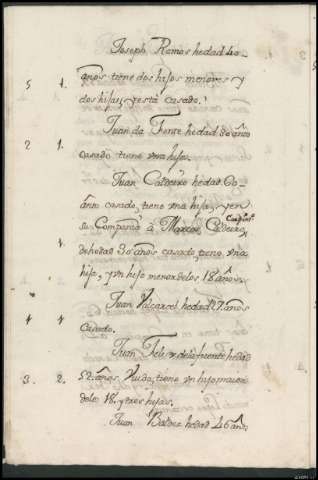 Joseph Ramos hedad 40
años tiene dos hijos menores y
5 1. dos hijas, y está casado.
Juan da Fonte hedad 30 años
2 1. casado tiene vna hija.
Juan Caldeiro hedad 60
años casado, tiene vna hija, y en
su Compañia à Marcos Caldeiro,
1 de hedad 30 años casado, tiene vna
hija, y vn hijo menor delos 18 años.
Juan Valcarcel hedad 27 años
1 1 Casado.
Juan Felix dela fuente hedad
3. 2. 52 años, Viudo, tiene vn hijo maior
delos 18. y tres hijas.
Juan hedad 46 años,